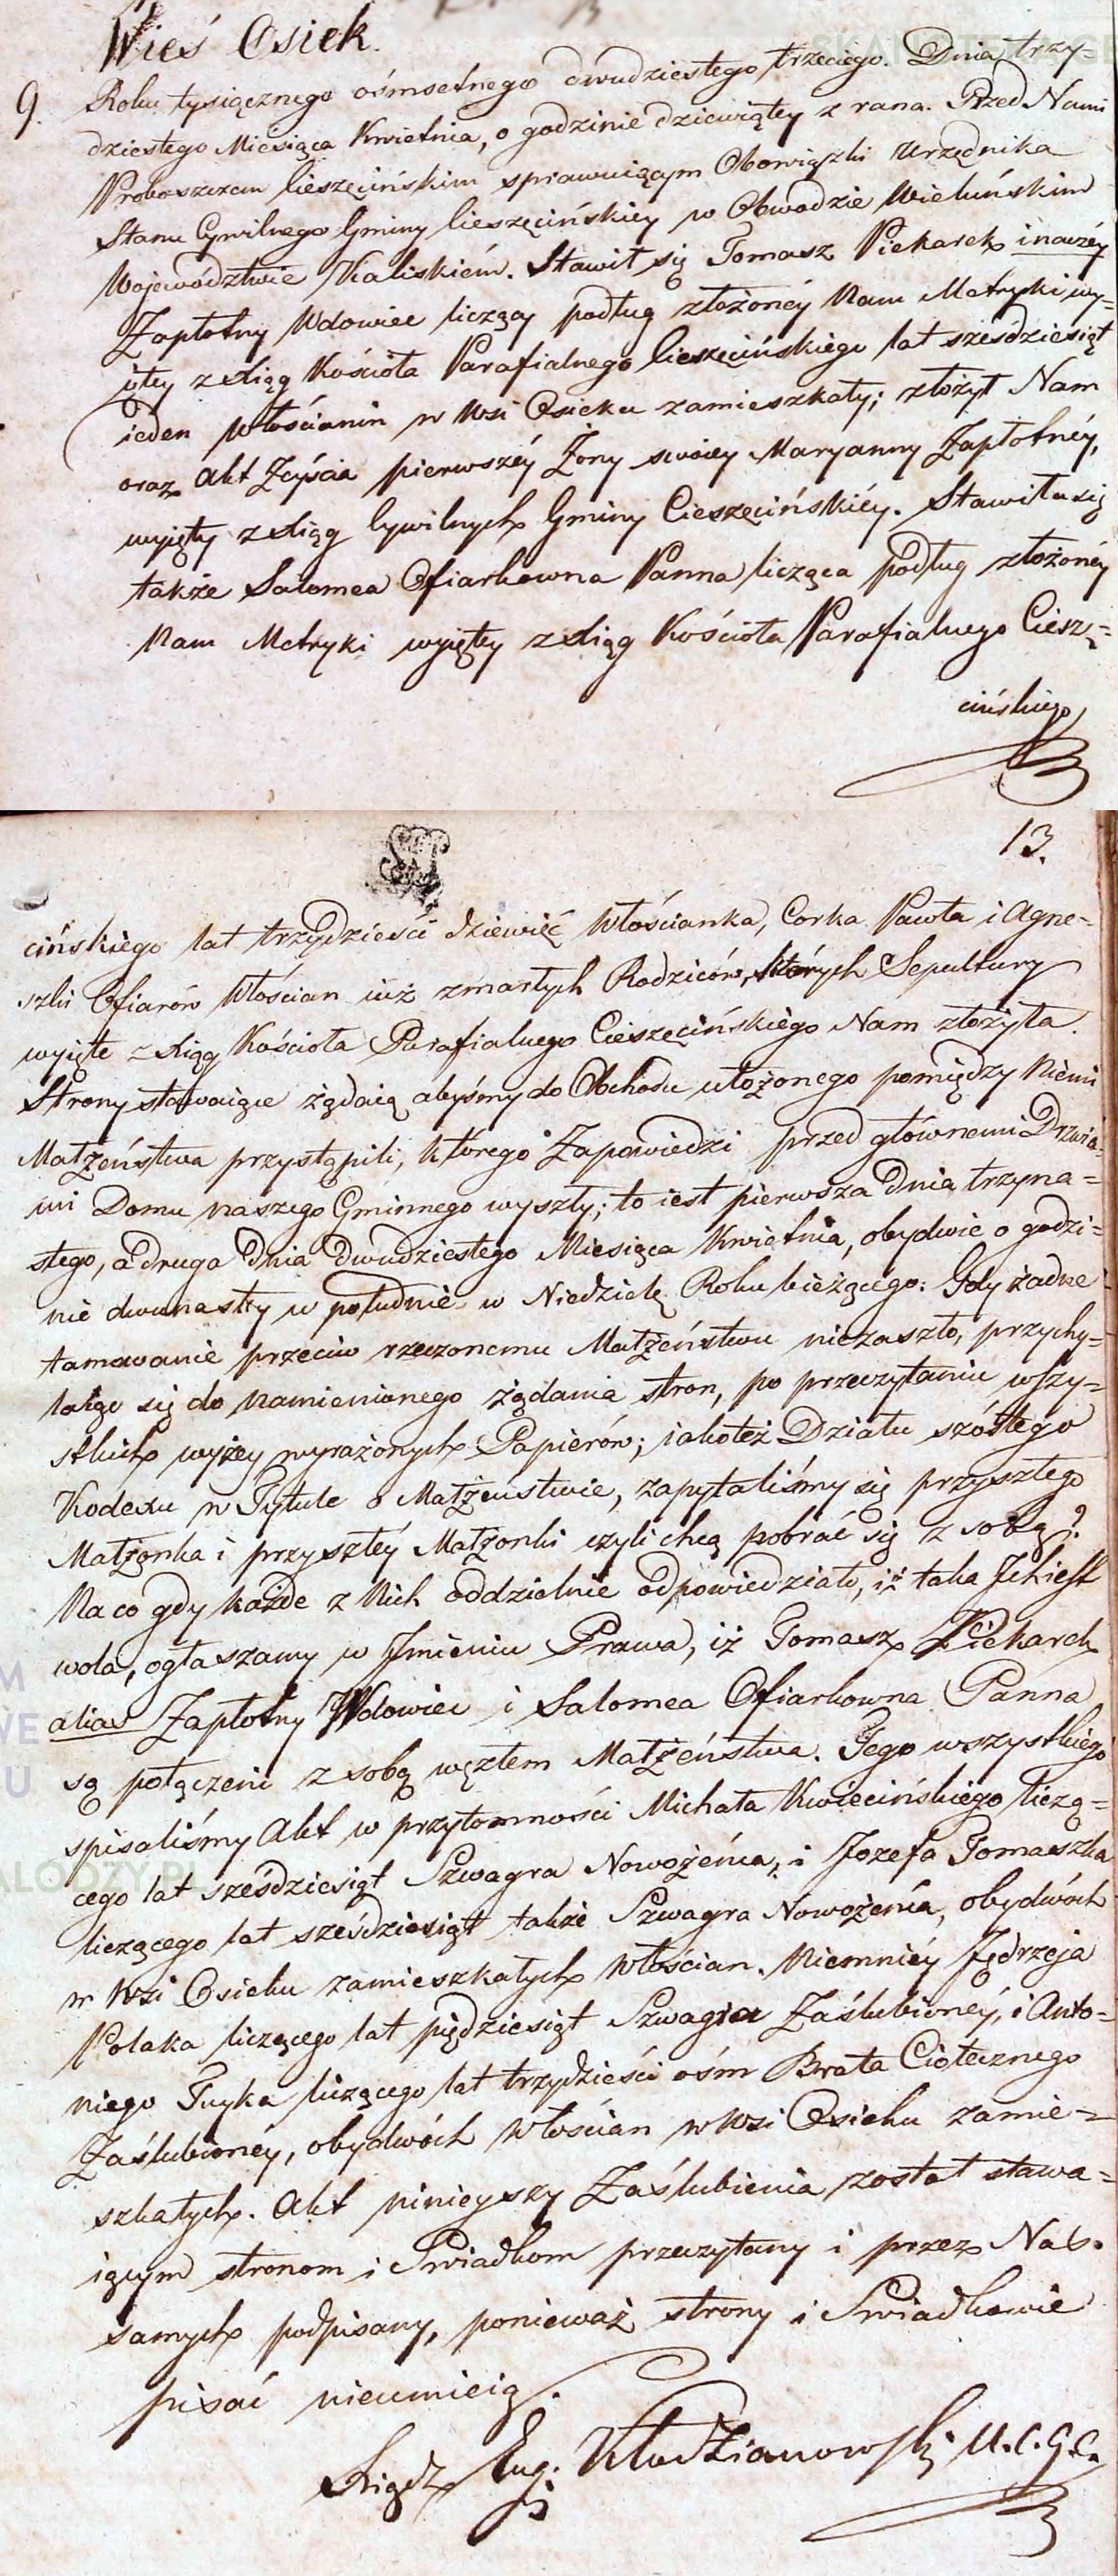 Wieś Osiek.
9. Roku tysiącznego ośmsetnego dwudziestego trzeciego. Dnia trzy=
dziestego Miesiąca Kwietnia, o godzinie dziewiątey z rana. Przed Nami
Proboszczem Cieszęcińskim sprawuiącym Obowiązki Urzędnika
Stanu Cywilnego Gminy Cieszęcińskiey w Obwodzie Wieluńskim
Województwie Kaliskiém. Stawił się Tomasz Piekarek inaczéy
Zapłotny Wdowiec liczący podług złożonéy Nam Metryki wy=
iętey z Xiąg Kościoła Parafialnego Cieszęcińskiego lat sześdziesiąt
ieden Włościanin w Wsi Osieku zamieszkały; złożył Nam
oraz Akt Zeyścia pierwszéy Żony swoiey Maryanny Zapłotnéy,
wyięty z Xiąg Cywilnych Gminy Cieszęcińskiéy. Stawiła się
także Salomea Ofiarkowna Panna licząca podług złożonéy
Nam Metryki wyiętey z Xiąg Kościoła Parafialnego Ciesz=
cińskiego
13.
cińskiego lat trzydzieści dziewięć Włościanka, Corka Pawła i Agne=
szki Ofiarów Włościan iuż zmarłych Rodziców, których Sepultury
wyięte z Xiąg Kościoła Parafialnego Cieszęcińskiego Nam złożyła.
Strony stawaiące żądaią abyśmy do Obchodu ułożonego pomiędzy Niemi
Małżeństwa przystąpili, którego Zapowiedzi przed głównemi Drzwia=
mi Domu naszego Gminnego wyszły; to iest pierwsza dnia trzyna=
stego, a druga dnia dwudziestego Miesiąca Kwietnia, obydwie o godzi=
nie dwunastey w południe w Niedzielę Roku bieżącego: Gdy żadne
tamowanie przeciw rzeczonemu Małżeństwu niezaszło, przychy=
laiąc się do namienionego żądania stron, po przeczytaniu wszy=
stkich wyżey wyrażonych Papierów; iakoteż Działu szóstego
Kodexu w Tytule o Małżeństwie, zapytaliśmy się przyszłego
Małżonka i przyszłéy Małżonki czyli chcą pobrać się z sobą?
Na co gdy każde z Nich oddzielnie odpowiedziało, iż taka Ich iest
wola, ogłaszamy w Imieniu Prawa, iż Tomasz Piekarek
alias Zapłotny Wdowiec i Salomea Ofiarkowna Panna
są połączeni z sobą węzłem Małżeństwa. Tego wszystkiego
spisaliśmy Akt w przytomności Michała Kwiecińskiego liczą=
cego lat sześdziesiąt Szwagra Nowożeńca, i Jozefa Tomaszka
liczącego lat sześdziesiąt także Szwagra Nowożeńca, obydwóch
w Wsi Osieku zamieszkałych Włościan. Niemniéy Jędrzeja
Polaka liczącego lat pięćdziesiąt Szwagra Zaślubionéy, i Anto=
niego liczącego lat trzydzieści ośm Brata Ciotecznego
Zaślubionéy, obydwóch Włościan w Wsi Osieku zamie=
szkałych. Akt ninieyszy Zaślubienia został stawa=
iącym stronom i Świadkom przeczytany i przez Nas.
samych podpisany, ponieważ strony i Świadkowie
pisać nieumieią.
Xiądz Aug. Włodzianowski U.C.G.C.